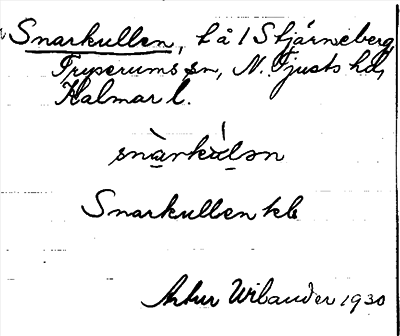 Snarkullen, t å 1 Stjärneberg,
Tryserums sn, N. Tjusts hd,
Kalmar l.
snàrkúlən
Snarkullen kb
Artur Wilander 1930